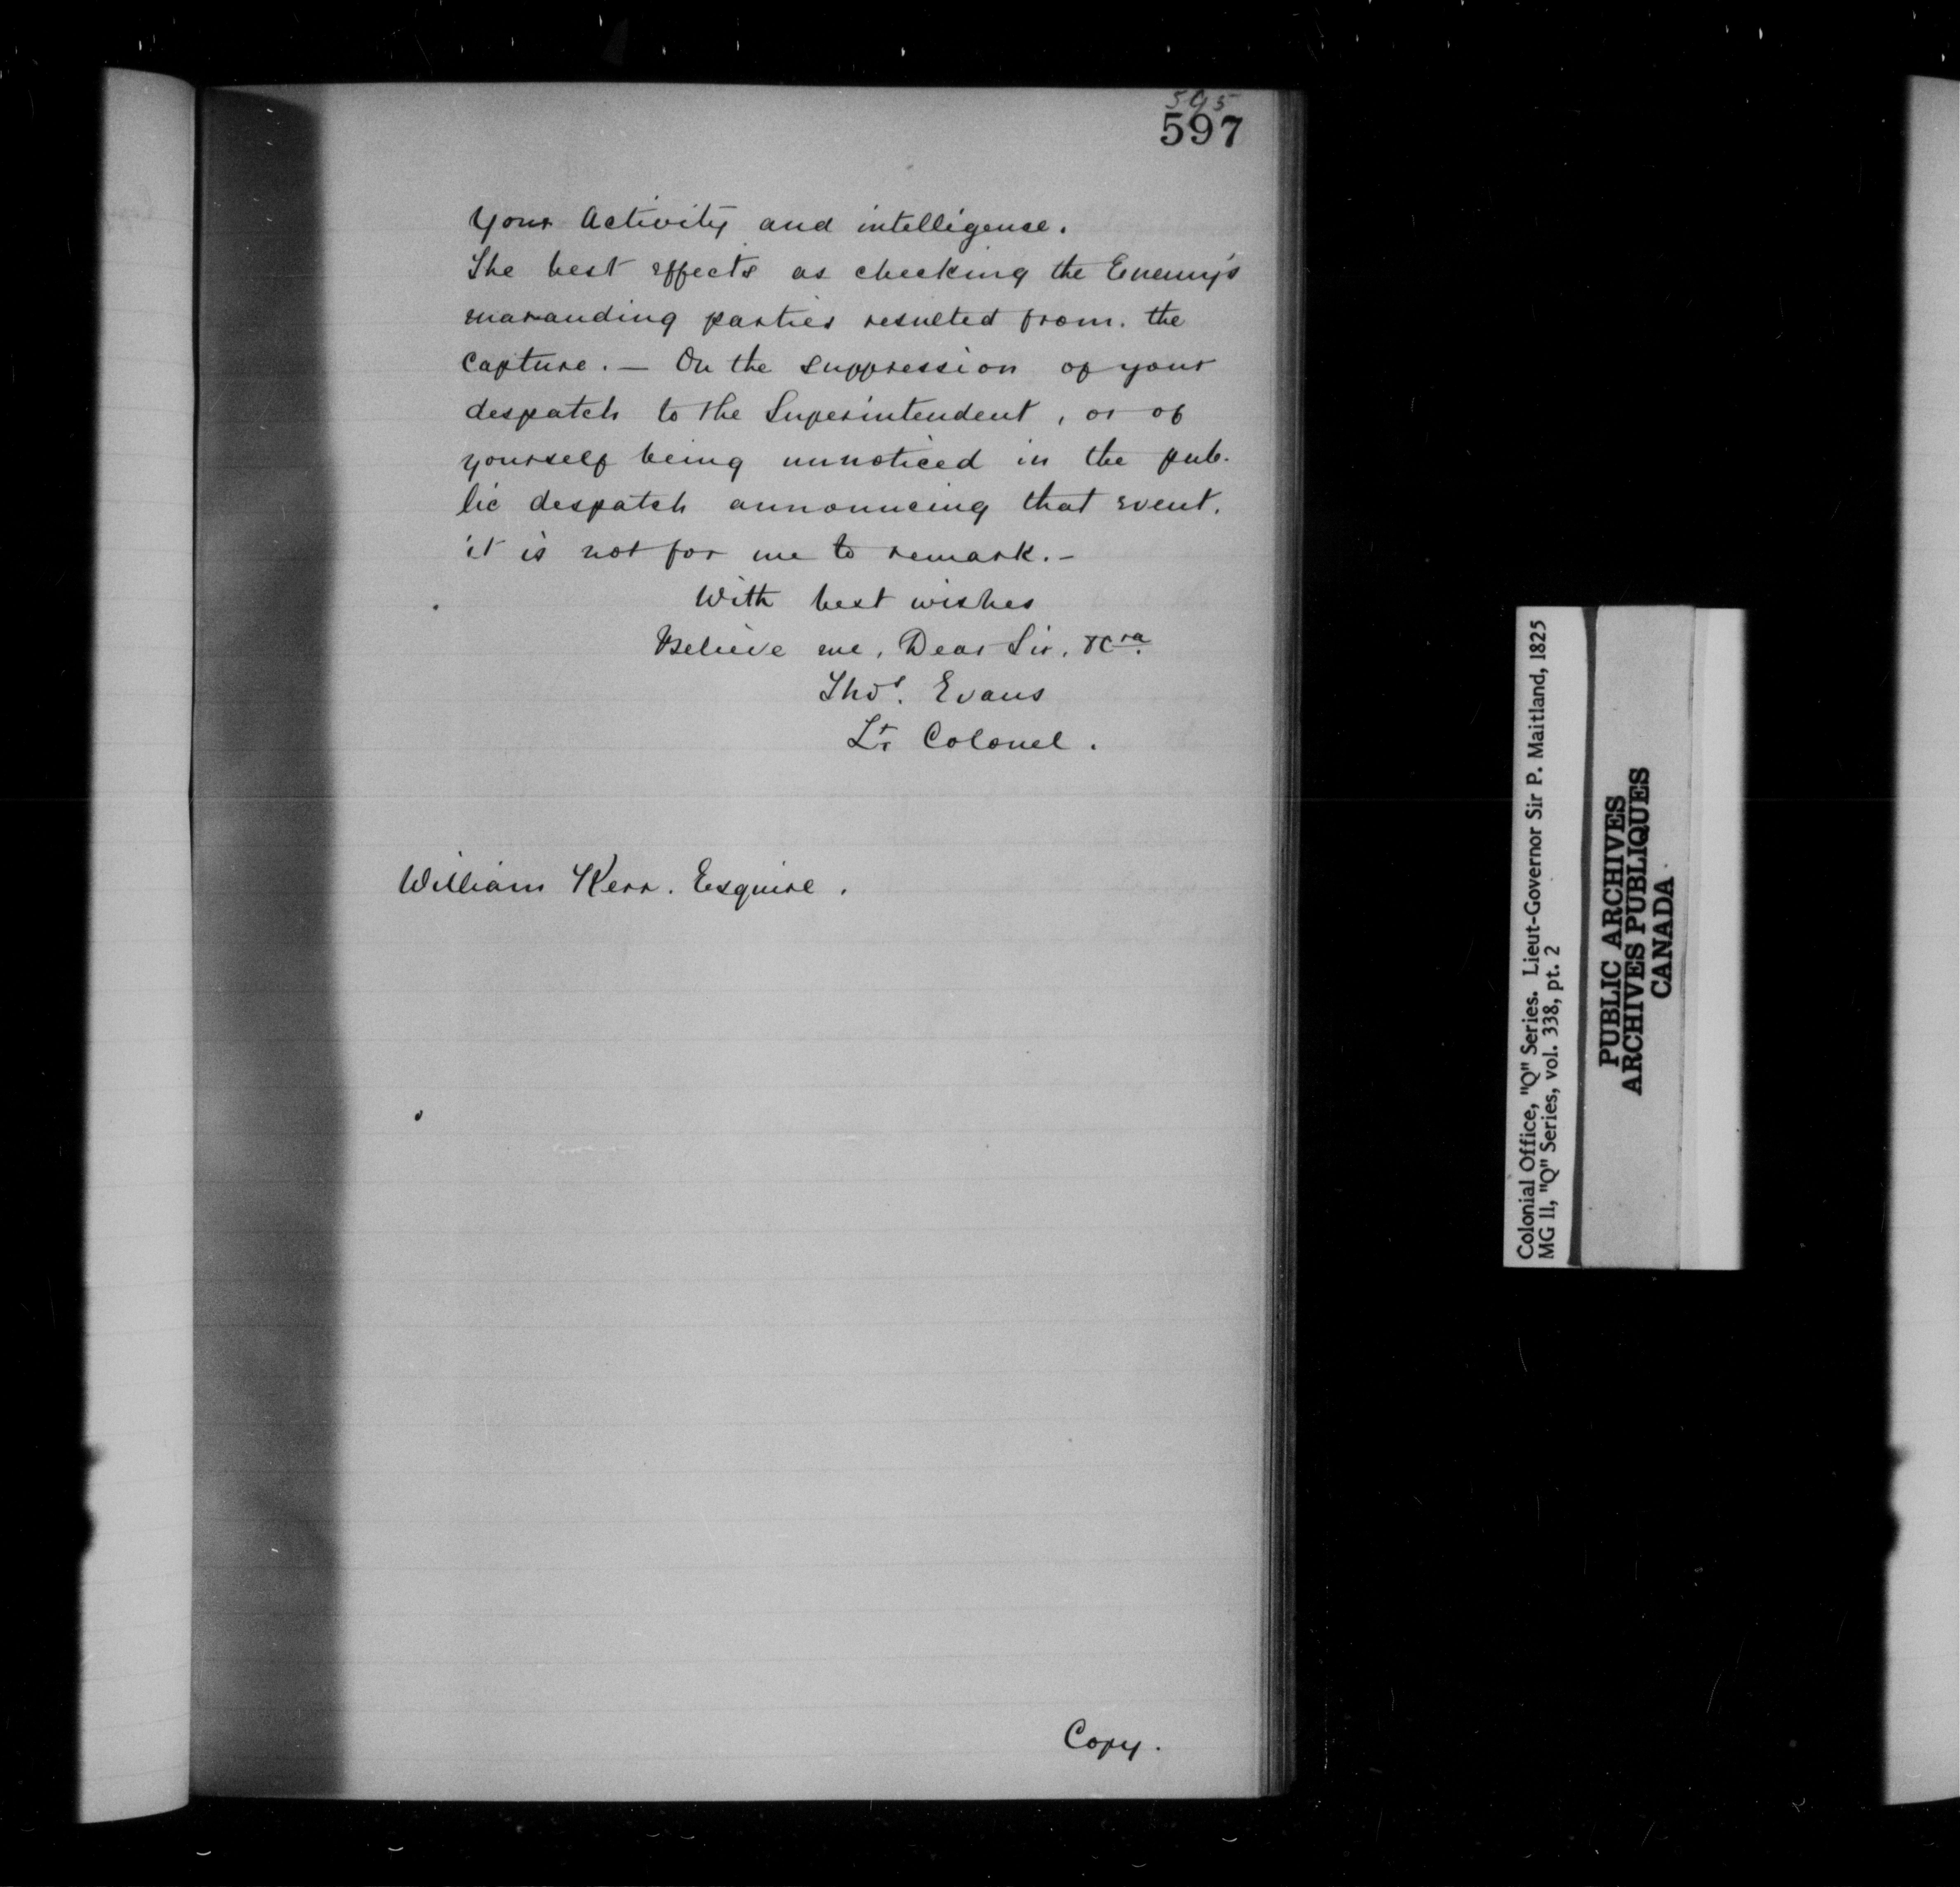 595
597
Your Activity and intelligence.
The best effects as checking the Enemy's
marauding parties resulted from. the
Capture. — On the suppression of your
despatch to the Superintendent, or of
yourself being unnoticed in the pub-
lic despatch announcing that event.
it is not for me to remark. -
With best wishes
Believe me, Dear Sir, &Cra.
Thos. Evans
Lt Colonel.
William Kerr. Esquire.
Copy.
Colonial Office, "Q" Series. Lieut-Governor Sir P. Maitland, 1825
MG 11, "Q" Series, vol. 338, pt. 2
PUBLIC ARCHIVES
ARCHIVES PUBLIQUES
CANADA